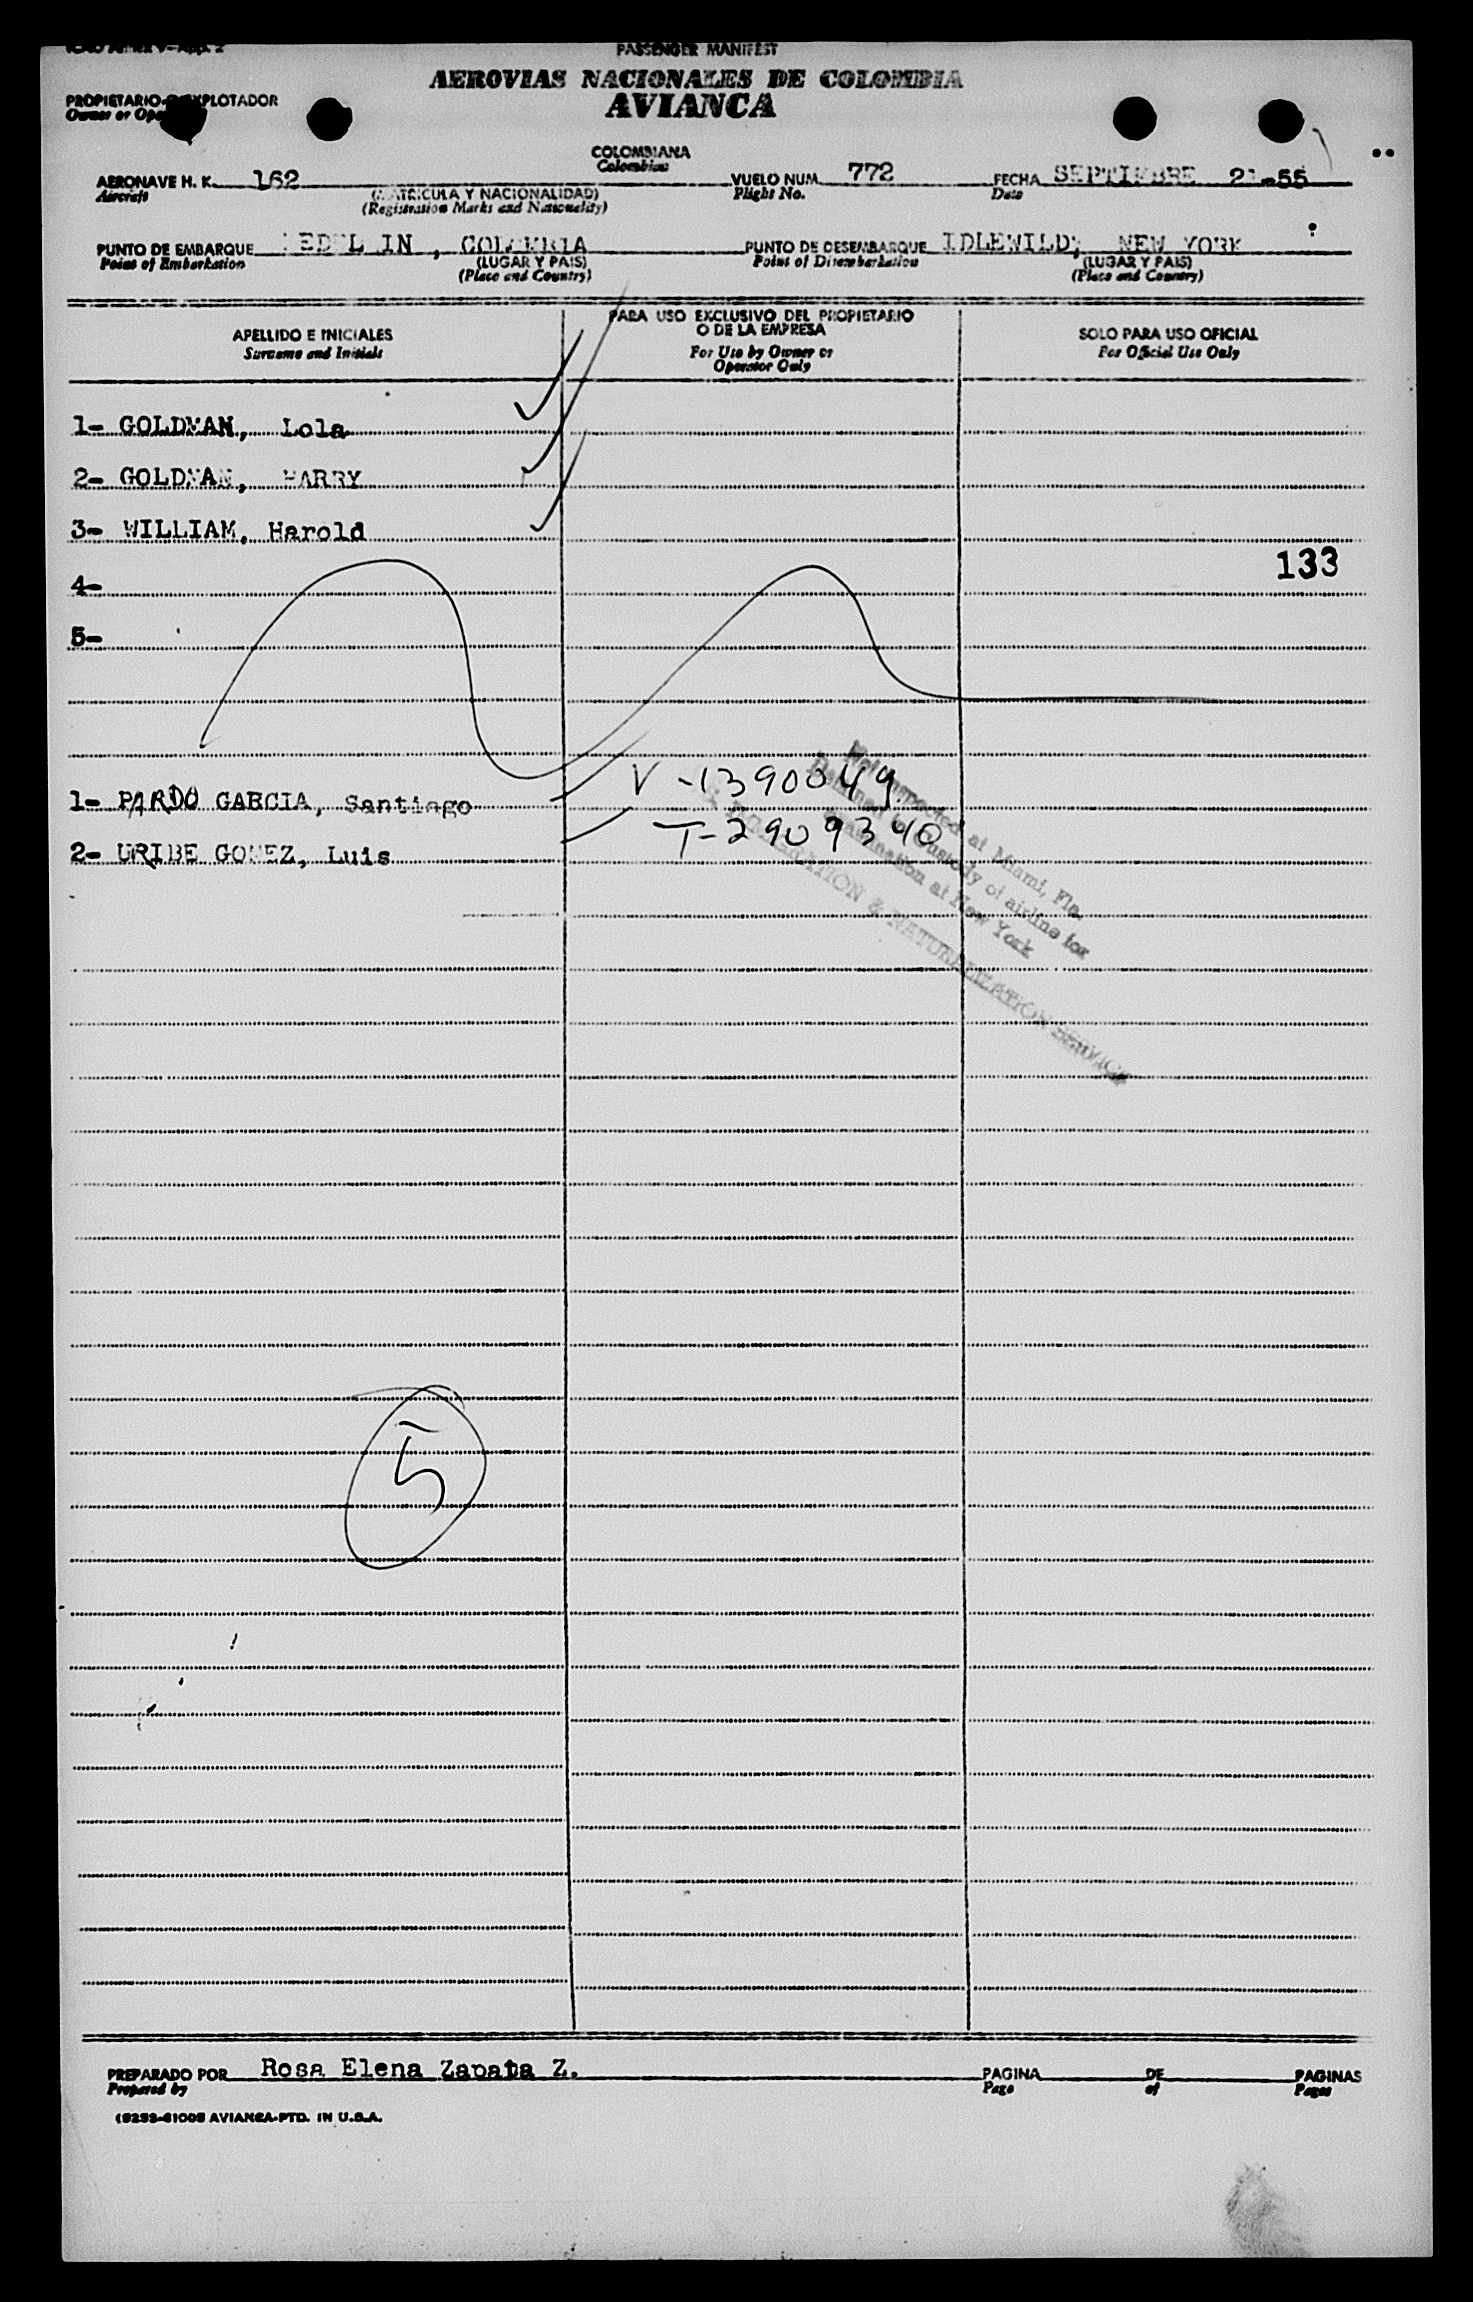 ICAO Annex 9-App. 2
PASSENGER MANIFEST
AEROVIAS NACIONALES DE COLOMBIA
AVIANCA
PROPIETARIO O EXPLOTADOR
Owner or Operator
COLOMBIANA
Colombian
AERONAVE H. K. 162 VUELO NUM. 772 FECHA SEPTIEMBRE 21-55
Aircraft (MATRICULA Y NACIONALIDAD) Flight No. Date
(Registration Marks and Nationality)
PUNTO DE EMBARQUE MEDELLIN, COLOMBIA PUNTO DE DESEMBARQUE IDLEWILD, NEW YORK
Point of Embarkation (LUGAR Y PAIS) Point of Disembarkation (LUGAR Y PAIS)
(Place and Country) (Place and Country)
APELLIDO E INICIALES PARA USO EXCLUSIVO DEL PROPIETARIO O DE LA EMPRESA SOLO PARA USO OFICIAL
Surname and Initials For Use by Owner or Operator Only For Official Use Only
1- GOLDMAN, Lola
2- GOLDMAN, HARRY
3- WILLIAM, Harold
133
4-
5-
1- PARDO GARCIA, Santiago V-1390049
2- URIBE GOMEZ, Luis T-2909340
Not inspected at Miami, Fla.
Detained in custody of airline for
examination at New York
IMMIGRATION & NATURALIZATION SERVICE
5
PREPARADO POR Rosa Elena Zapata Z. PAGINA DE PAGINAS
Prepared by Page of Pages
AVIANCA-PTD. IN U.S.A.